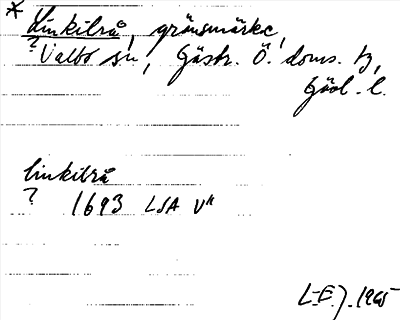 * Linkilrå, gränsmärke,
? Valbo sn, Gästr. Ö. doms. tg,
Gävl. l.
linkilrå
? 1693 LSA V"
L-E. J. 1965